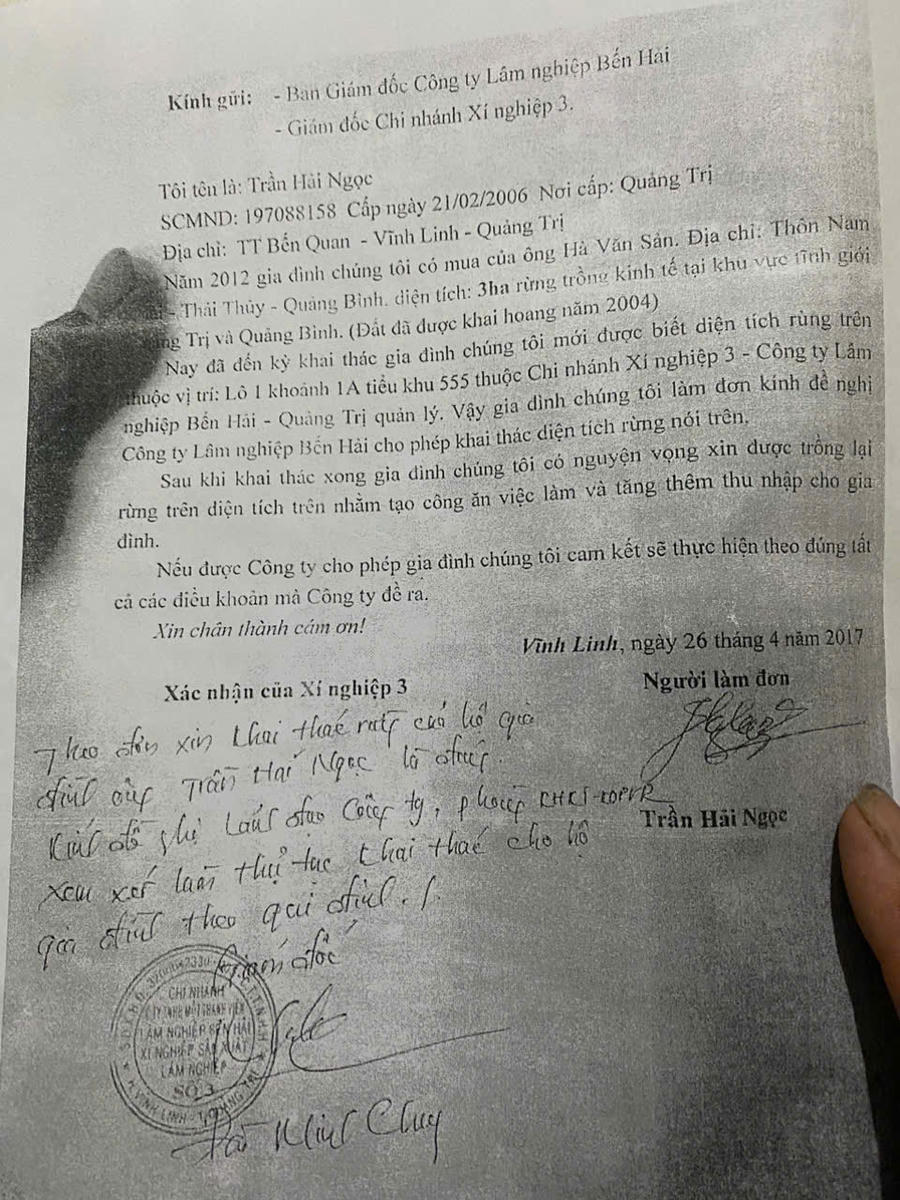 Kính gửi: - Ban Giám đốc Công ty Lâm nghiệp Bến Hải
- Giám đốc Chi nhánh Xí nghiệp 3.
Tôi tên là: Trần Hải Ngọc
SCMND: 197088158 Cấp ngày 21/02/2006 Nơi cấp: Quảng Trị
Địa chỉ: TT Bến Quan - Vĩnh Linh - Quảng Trị
Năm 2012 gia đình chúng tôi có mua của ông Hà Văn Sản. Địa chỉ: Thôn Nam
- Thái Thủy - Quảng Bình. diện tích: 3ha rừng trồng kinh tế tại khu vực rĩnh giới
Trị và Quảng Bình. (Đất đã được khai hoang năm 2004)
Nay đã đến kỳ khai thác gia đình chúng tôi mới được biết diện tích rừng trên
thuộc vị trí: Lô 1 khoảnh 1A tiểu khu 555 thuộc Chi nhánh Xí nghiệp 3 - Công ty Lâm
nghiệp Bến Hải - Quảng Trị quản lý. Vậy gia đình chúng tôi làm đơn kính đề nghị
Công ty Lâm nghiệp Bến Hải cho phép khai thác diện tích rừng nói trên.
Sau khi khai thác xong gia đình chúng tôi có nguyện vọng xin được trồng lại
rừng trên diện tích trên nhằm tạo công ăn việc làm và tăng thêm thu nhập cho gia
đình.
Nếu được Công ty cho phép gia đình chúng tôi cam kết sẽ thực hiện theo đúng tất
cả các điều khoản mà Công ty đề ra.
Xin chân thành cám ơn!
Vĩnh Linh, ngày 26 tháng 4 năm 2017
Xác nhận của Xí nghiệp 3
Người làm đơn
Theo đơn xin khai thác rừng của hộ gia
đình ông Trần Hải Ngọc là đúng.
Kính đề nghị Lãnh đạo Công ty, phòng
Trần Hải Ngọc
xem xét làm thủ tục khai thác cho hộ
gia đình theo qui định./.
Giám đốc
CHI NHÁNH
CTY TNHH MỘT THÀNH VIÊN
LÂM NGHIỆP BẾN HẢI
XÍ NGHIỆP SẢN XUẤT
LÂM NGHIỆP
SỐ 3
H. VĨNH LINH - T. QUẢNG TRỊ